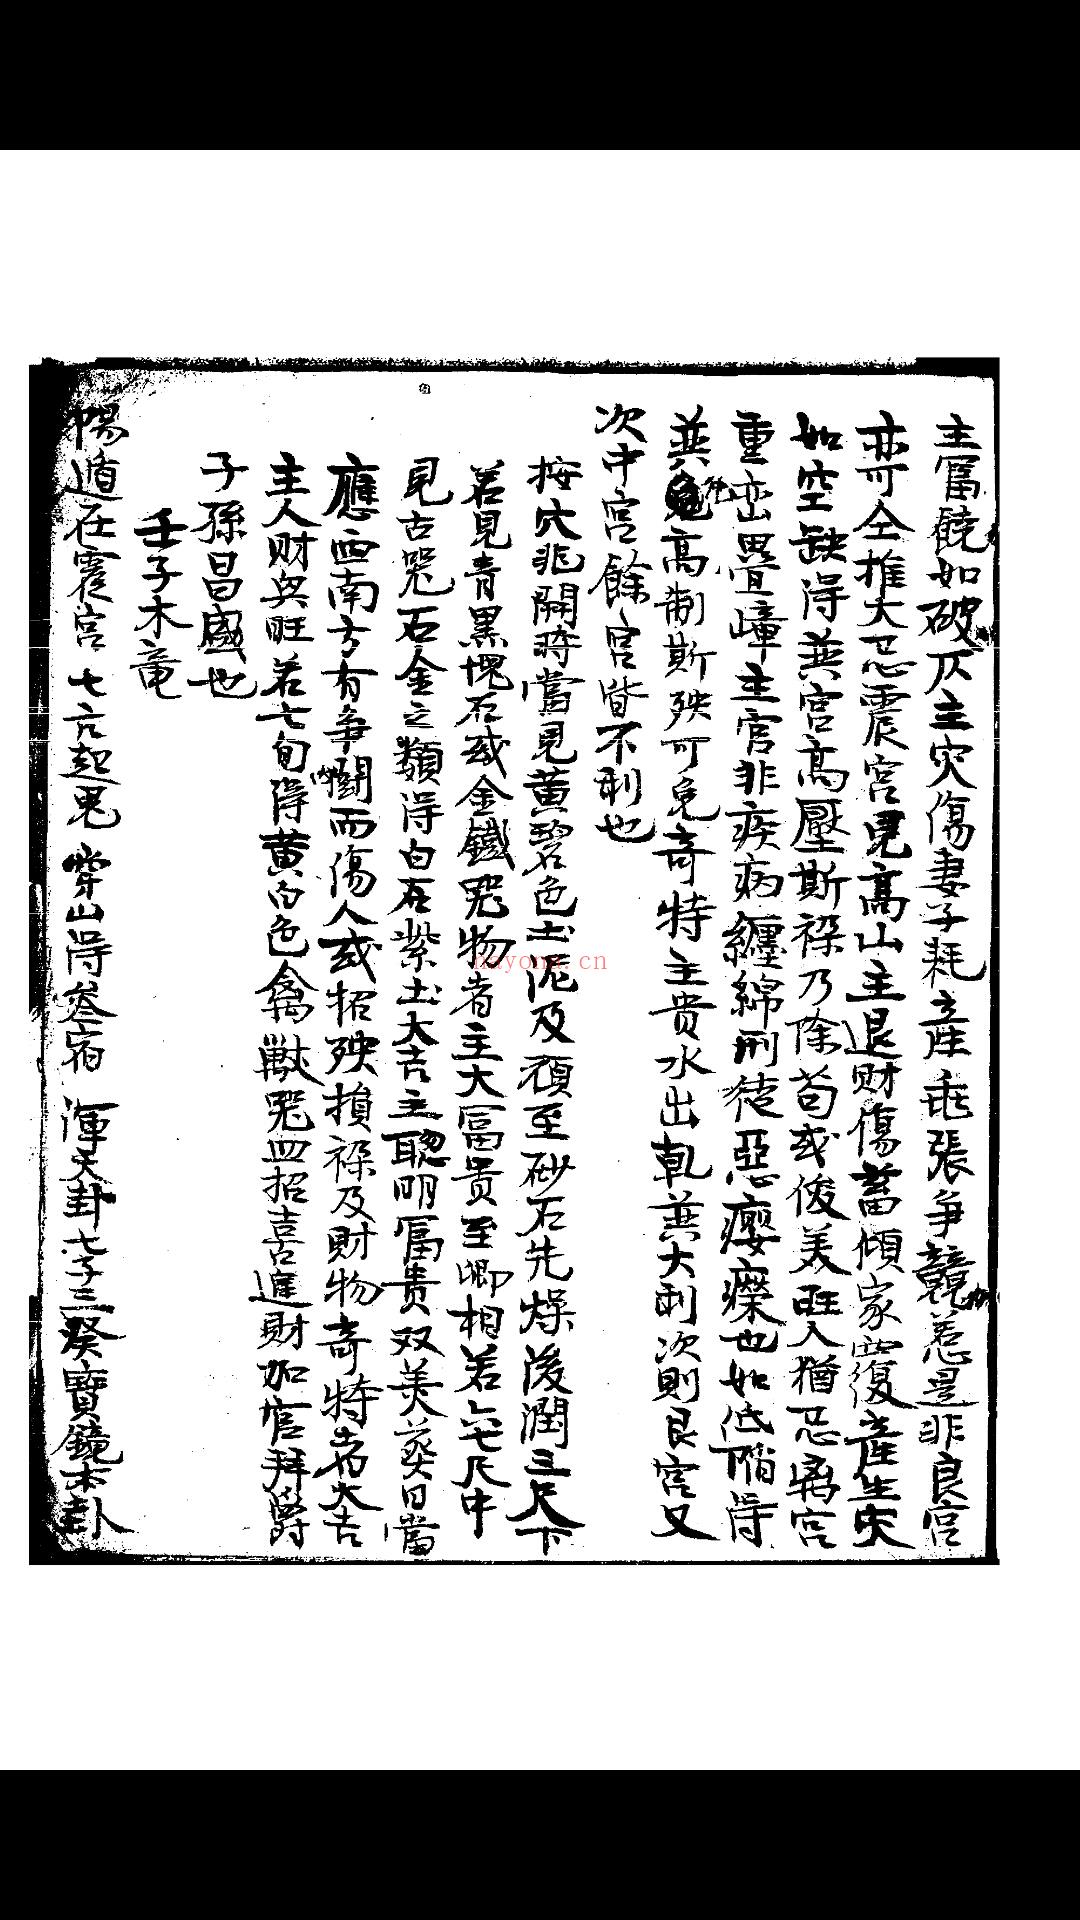 主富饒如破仄主灾傷妻子耗產乖張爭競惹是非艮宮
亦可仝推大忌震宮見高山主退財傷畜傾家覆產生灾
如空缺得巽宮高壓斯祿乃除苟或俊美旺人猶忌离宮
重峦疊嶂主官非疾病纏綿刑徒惡癭瘰也如低陷得
巽兔高制斯殃可免奇特主貴水出乾巽大利次則艮宮又
次中宮餘宮皆不利也
按穴兆開時當見黃碧色土泥及頑至砂石先燥後潤三尺下
若見青黑塊石或金鐵咒物者主大富貴至卿相若七尺中
見古咒石金之類得白石紫土大吉主聰明富貴双美葵日當
應西南方有爭鬬而傷人或招殃損祿及財物奇特者大吉
主人财與旺若七旬得黃白色禽獸咒血招喜進財加官拜爵
子孫昌盛也
壬子木竜
陽遁在震宮 七亢起鬼 穿山得参宿 渾天卦七子三癸寶鏡本卦
nayona.cn